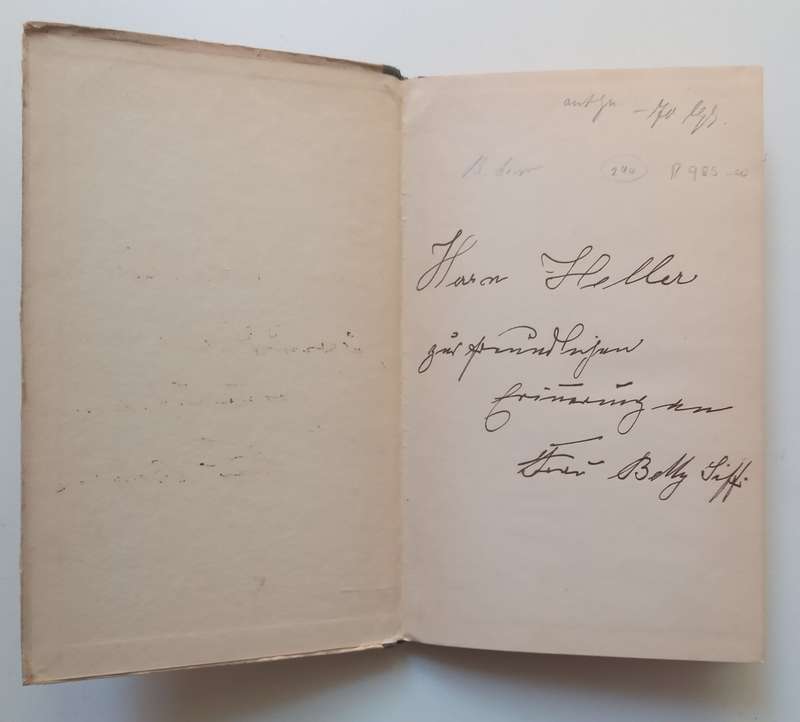 antqu -70 Kčs.
244 P 985
Herrn Heller
zur freundlichen
Erinnerung an
Frau Betty